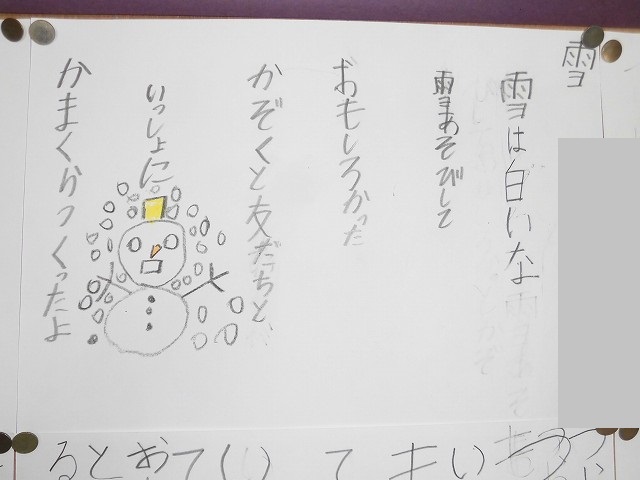 雪
雪は白いな
雪あそびして
おもしろかった
かぞくと友だちと、
いっしょに
かまくらつくったよ